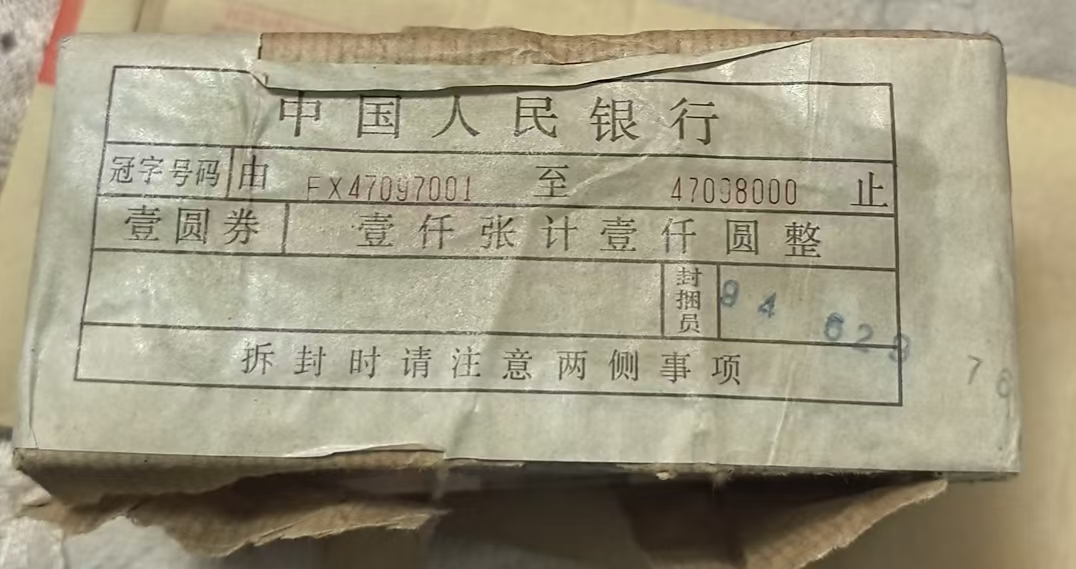 中国人民银行
冠字号码 由 FX47097001 至 47098000 止
壹圆券 壹仟张计壹仟圆整
封捆员 94 629 76
拆封时请注意两侧事项